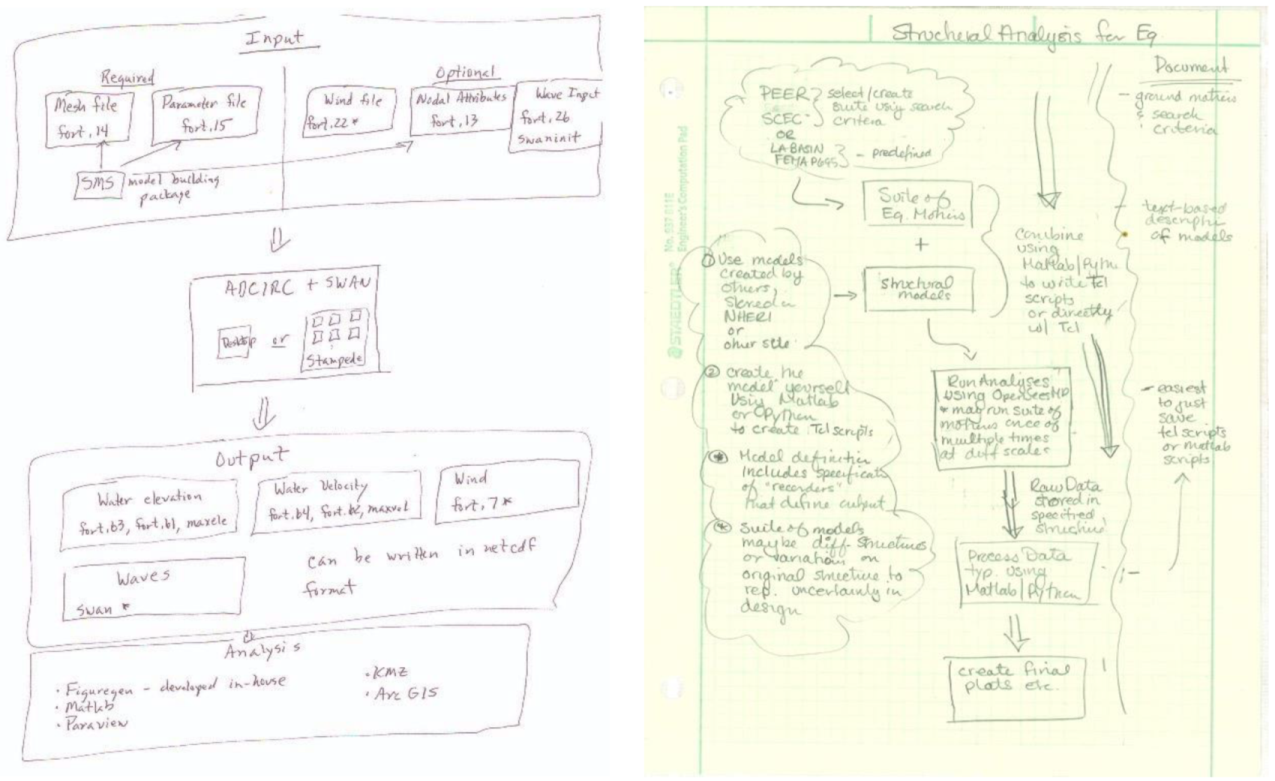 Input
Required
Mesh file
fort.14
Parameter file
fort.15
SMS
model building
package
Optional
Wind file
fort.22 *
Nodal Attributes
fort.13
Wave Input
fort.26
swaninit
ADCIRC + SWAN
Desktop or
Stampede
Output
Water elevation
fort.63, fort.61, maxele
Water Velocity
fort.64, fort.62, maxvel
Wind
fort.7*
Waves
swan *
can be written in netcdf
format
Analysis
• Figuregen - developed in-house
• Matlab
• Paraview
• KMZ
• Arc GIS
Structural Analysis for Eq
PEER
SCEC
select/create
suite using search
criteria
OR
LA BASIN
FEMA P695
- predefined
Suite of
Eq. Motions
+
structural
models
① Use models
created by
others,
stored in
NHERI
or
other site
② create the
model yourself
Using Matlab
or Python
to create Tcl scripts
* Model definition
includes specification
of "recorders"
that define output
* Suite of models
may be diff structures
or variations on
original structure to
rep. uncertainty in
design
Combine
using
Matlab/Python
to write Tcl
scripts
or directly
w/ Tcl
Run Analyses
using OpenSeesMP
* may run suite of
motions once or
multiple times
at diff scales
Raw Data
stored in
specified
structure
Process Data
typ. using
Matlab/Python
create final
plots etc.
Document
- ground motions
& search
criteria
- text-based
descriptn
of models
- easiest
to just
save
tcl scripts
or matlab
scripts
@STAEDTLER
No. 937 811E
Engineer's Computation Pad